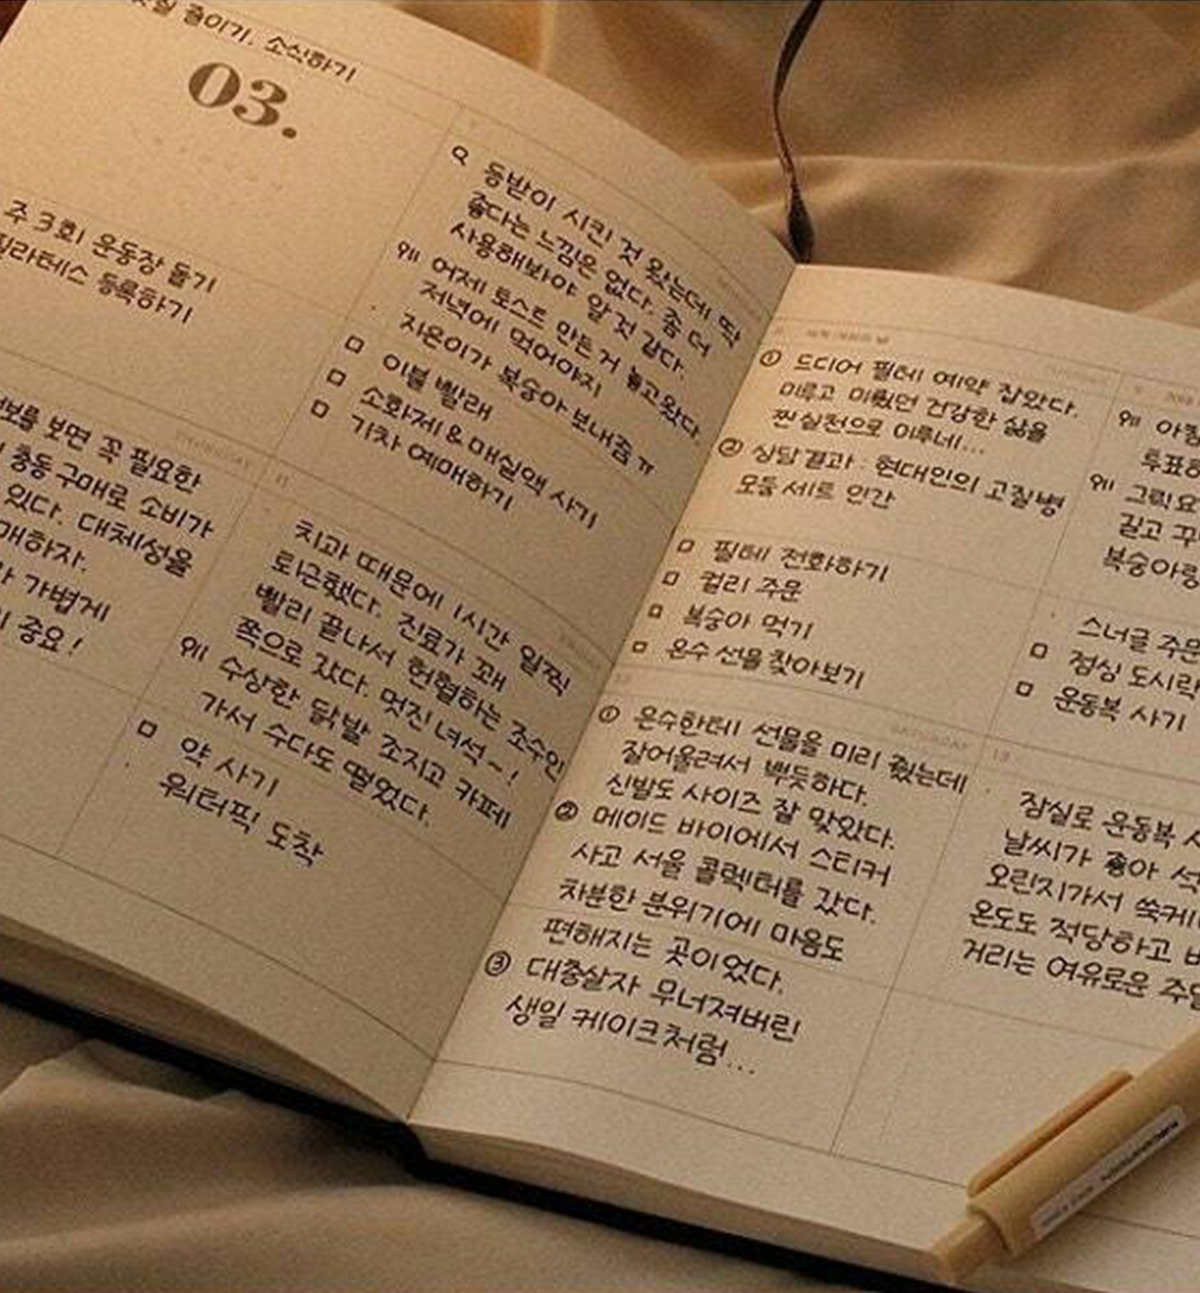 줄이기, 소식하기
03.
주 3회 운동장 돌기
필라테스 등록하기
보면 꼭 필요한
충동 구매로 소비가
있다. 대체성을
매하자.
가볍게
중요!
등받이 시킨 것 왔는데 딱
좋다는 느낌은 없다. 좀 더
사용해봐야 알 것 같다.
어제 토스트 만든 거 놓고왔다.
저녁에 먹어야지
지은이가 복숭아 보내줌 ㅠ
이불 빨래
소화제 & 매실액 사기
기차 예매하기
11
치과 때문에 1시간 일찍
퇴근했다. 진료가 꽤
빨리 끝나서 헌혈하는
쪽으로 갔다. 멋진 녀석~!
수상한 닭발 조지고 카페
가서 수다도 떨었다.
약 사기
워터픽 도착
① 드디어 필테 예약 잡았다.
미루고 미뤘던 건강한 삶을
찐 실천으로 이루네...
② 상담결과 : 현대인의 고질병
모둠 세트 인간
필테 전화하기
컬리 주문
복숭아 먹기
온수 선물 찾아보기
① 온수한테 선물을 미리 줬는데
잘어울려서 뿌듯하다.
신발도 사이즈 잘 맞았다.
② 메이드 바이에서 스티커
사고 서울 콜렉터를 갔다.
차분한 분위기에 마음도
편해지는 곳이었다.
③ 대충살자 무너져버린
생일 케이크처럼...
그릭요
길고
복숭아
스너글 주문
점심 도시락
운동복 사기
13
잠실로 운동복
날씨가 좋아
오린지가서
온도도 적당하고
거리는 여유로운